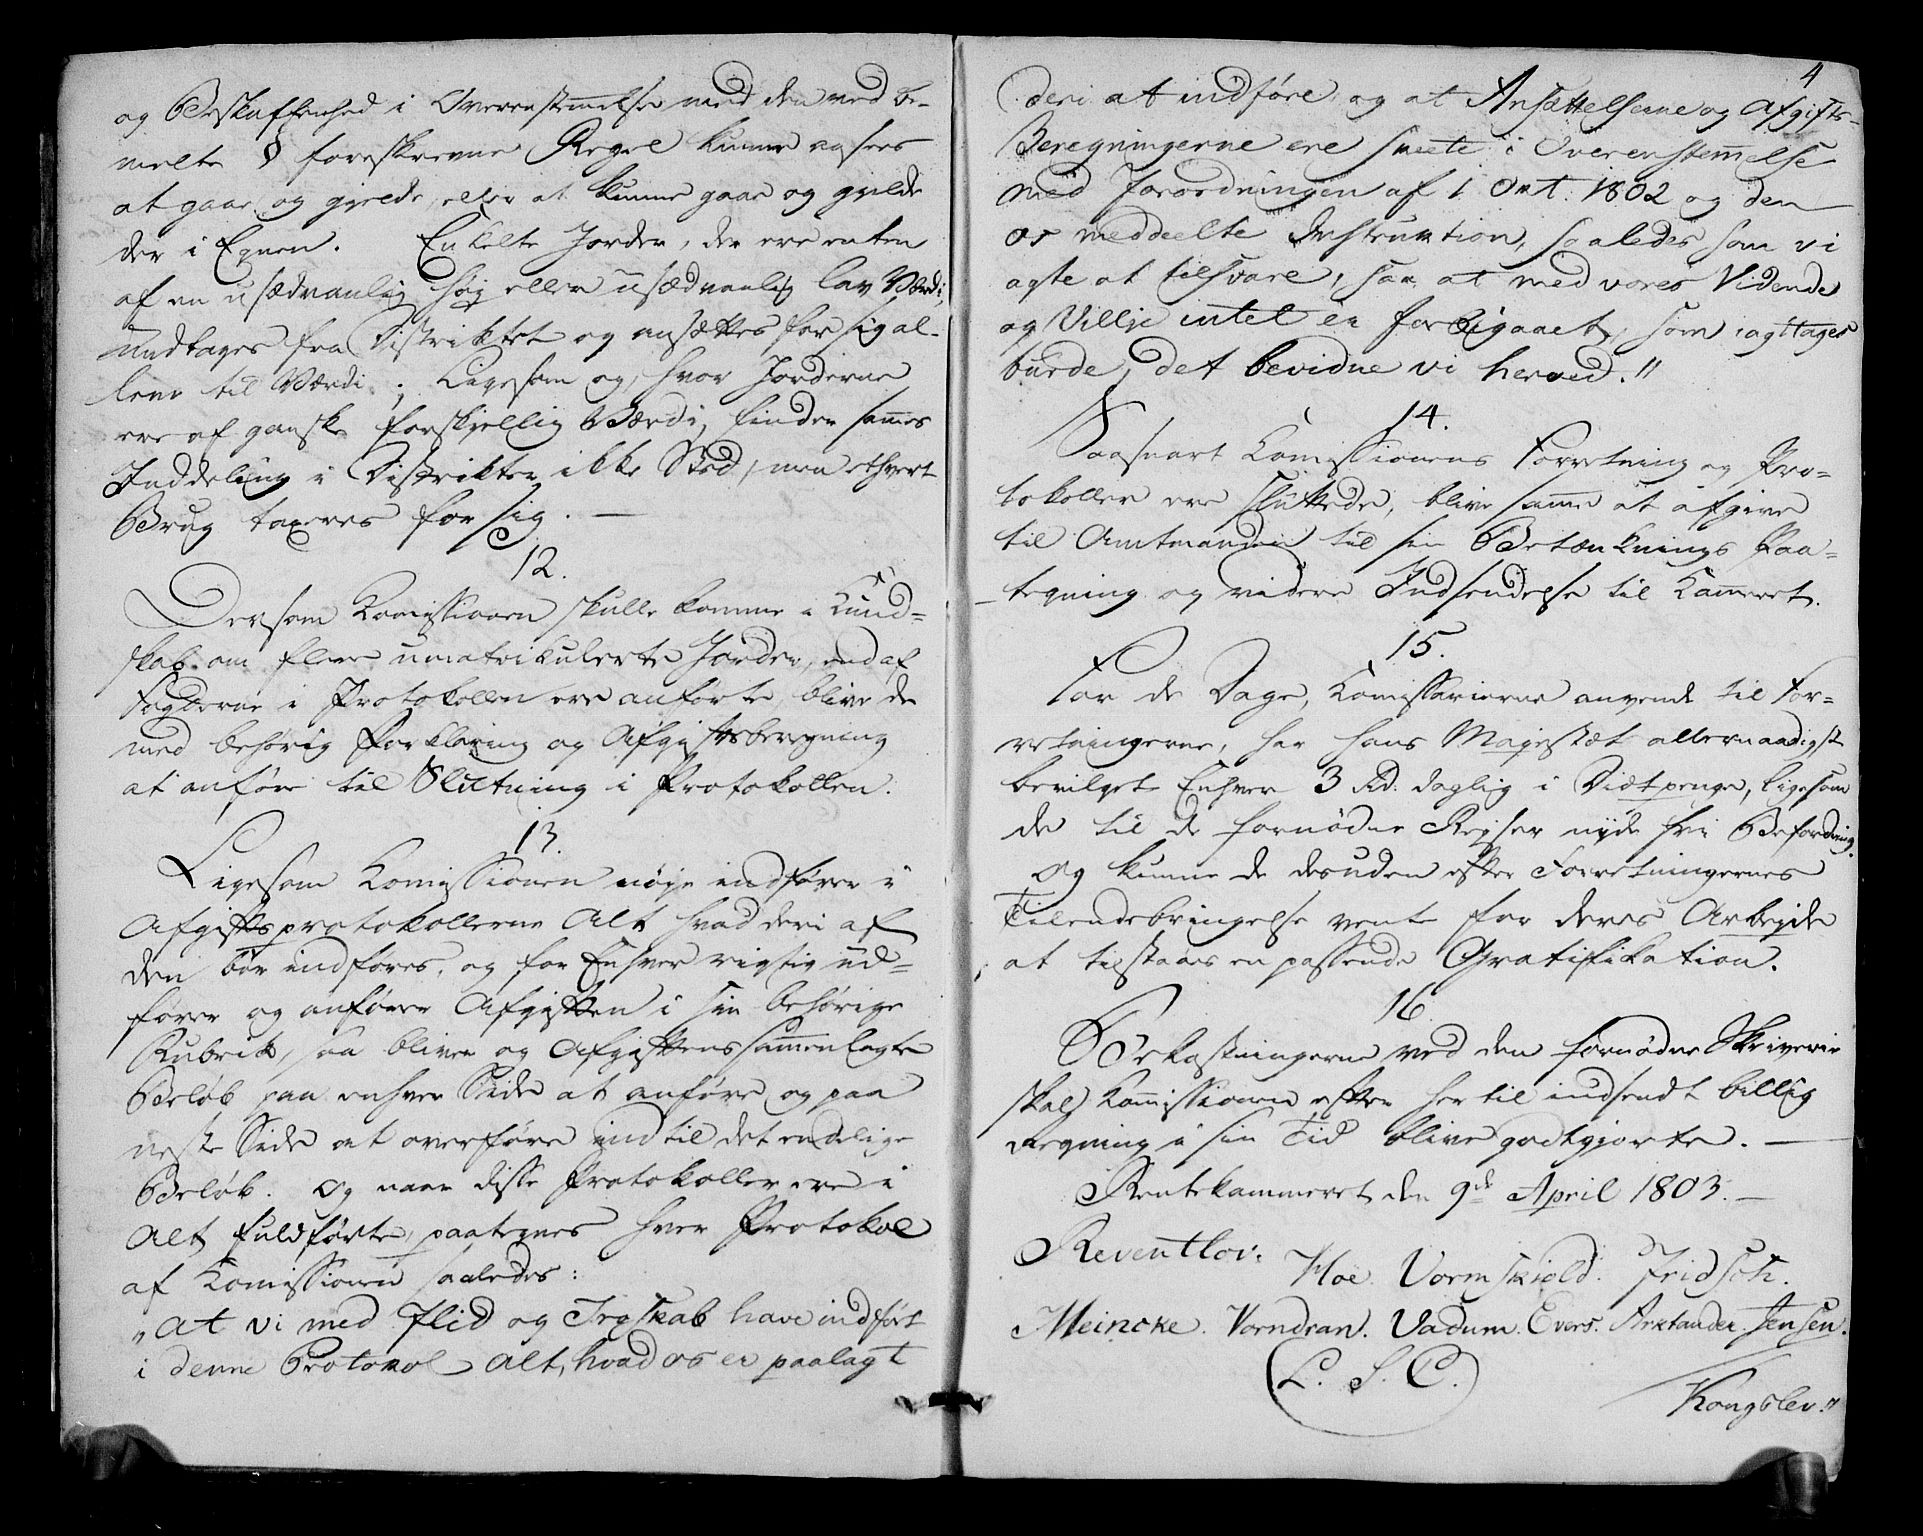 og Beskaffenhed i Overensstemmelse med den ved be-
melte § foreskrevne Regel kunne agtes
at gaae og gielde, eller at kunne gaae og gielde
der i Egnen. Enkelte Jorder, der ere enten
af en usædvanlig høj eller usædvanlig lav Værdi,
undtages fra Distriktet og ansættes for sig al-
lene til Værdi; Ligesom og, hvor Jorderne
ere af ganske forskjellig Værdi, finder sammes
Inddeling i Distrikter ikke Sted, men ethvert
Brug taxeres for sig. —
12.
Dersom Komissionen skulle komme i Kund-
skab om flere umatrikulerte Jorder, end af
Fogderne i Protokollen ere anførte, blive de
med behørig Forklaring og Afgiftsberegning
at anføre til Slutning i Protokollen.
13.
Ligesom Komissionen nøje indfører i
Afgiftsprotokollerne Alt hvad deri af
den bør indføres, og for Enhver rigtig ud-
fører og anfører Afgiften i sin behørige
Rubrik, saa bliver og Afgiftens sammenlagte
Beløb paa enhver Side at anføre og paa
neste Side at overføre indtil det endelige
Beløb. Og naar disse Protokoller ere i
Alt fuldførte, paategnes hver Protokol
af Komissionen saaledes:
„At vi med Flid og Troskab have indført
i denne Protokol Alt, hvad os er paalagt
4
deri at indføre, og at Ansættelserne og Afgifts-
Beregningerne ere skeete i Overensstemmelse
med Forordningen af 1 Okt. 1802 og den
os meddeelte Instruktion, saaledes som vi
agte at tilsvare, saa at med vores Vidende
og Villje intet er forbigaaet, som iagttages
burde, det bevidne vi herved."
14.
Saasnart Komissionens Forretning og Pro-
tokoller ere sluttede, blive samme at afgive
til Amtmanden til sin Betænknings Paa-
tegning og videre Indsendelse til Kammeret.
15.
For de Dage, Komissarierne anvende til For-
retningerne, har Hans Majestæt allernaadigst
bevilget Enhver 3 Rd. daglig i Diætpenge, ligesom
de til de fornødne Rejser nyde fri Befordring.
Og kunne de desuden efter Forretningernes
Tilendebringelse vente for deres Arbejde
at tilstaaes en passende Gratifikation.
16.
Bekostningerne ved den fornødne Skriverie
skal Kommissionen efter her til indsendt billig
Regning i sin Tid blive godtgjorte. —
Rentekammeret den 9de April 1803. —
Reventlov.
Hoe. Vormskiold. Fridsch.
Meincke. Vorndran. Vadum. Evers. Arktander. Jensen.
(L. S. C.)
Kongslev."